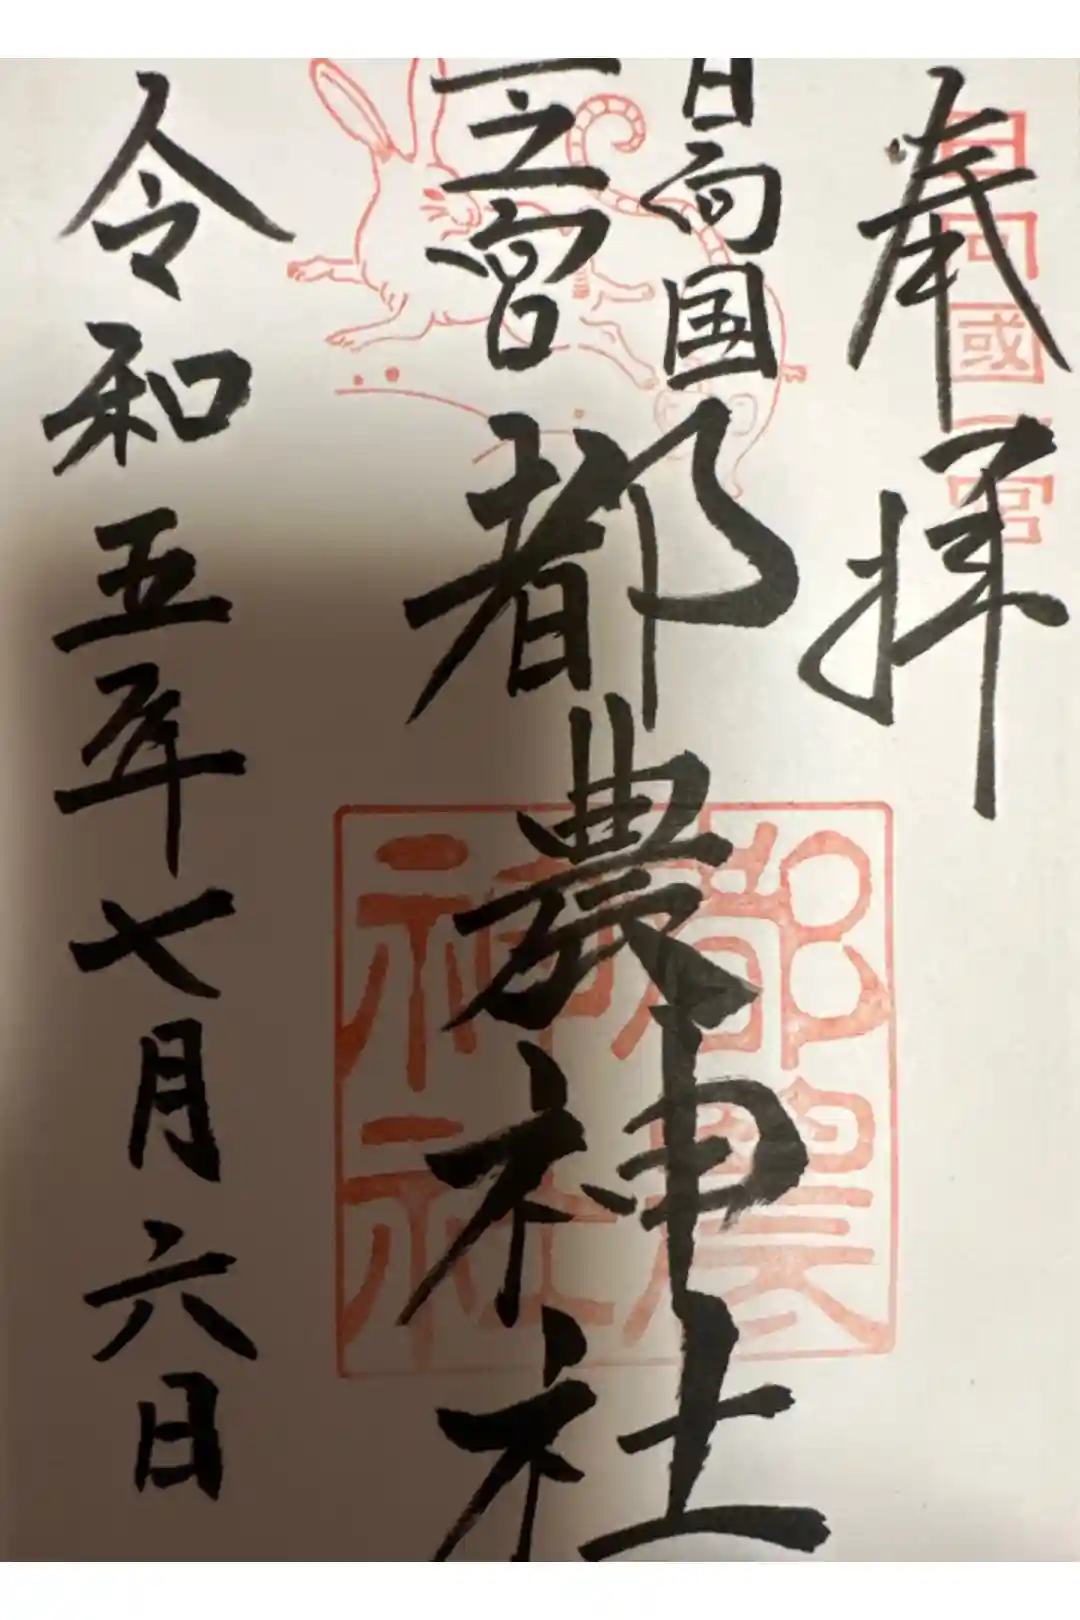 奉拝
日向國一宮
日向国
一之宮
都農神社
都農
神社
令和五年七月六日